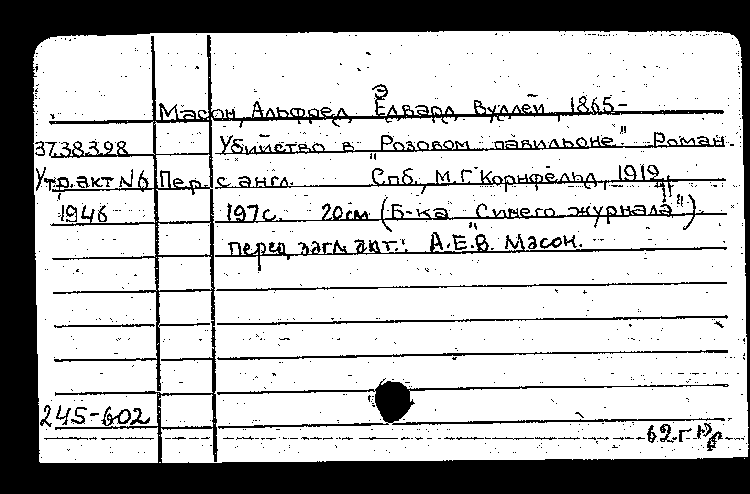 Э
Масон, Альфред Едвард Вудлей, 1865-
37.38.3.98 Убийство в "Розовом павильоне". Роман.
Утр. акт N6 Пер. с англ. Спб., М.Г. Корнфельд, 1919,
1946 197 с. 20 см (Б-ка "Синего журнала")
перед загл. авт.: А.Е.В. Масон.
245-602
62 г